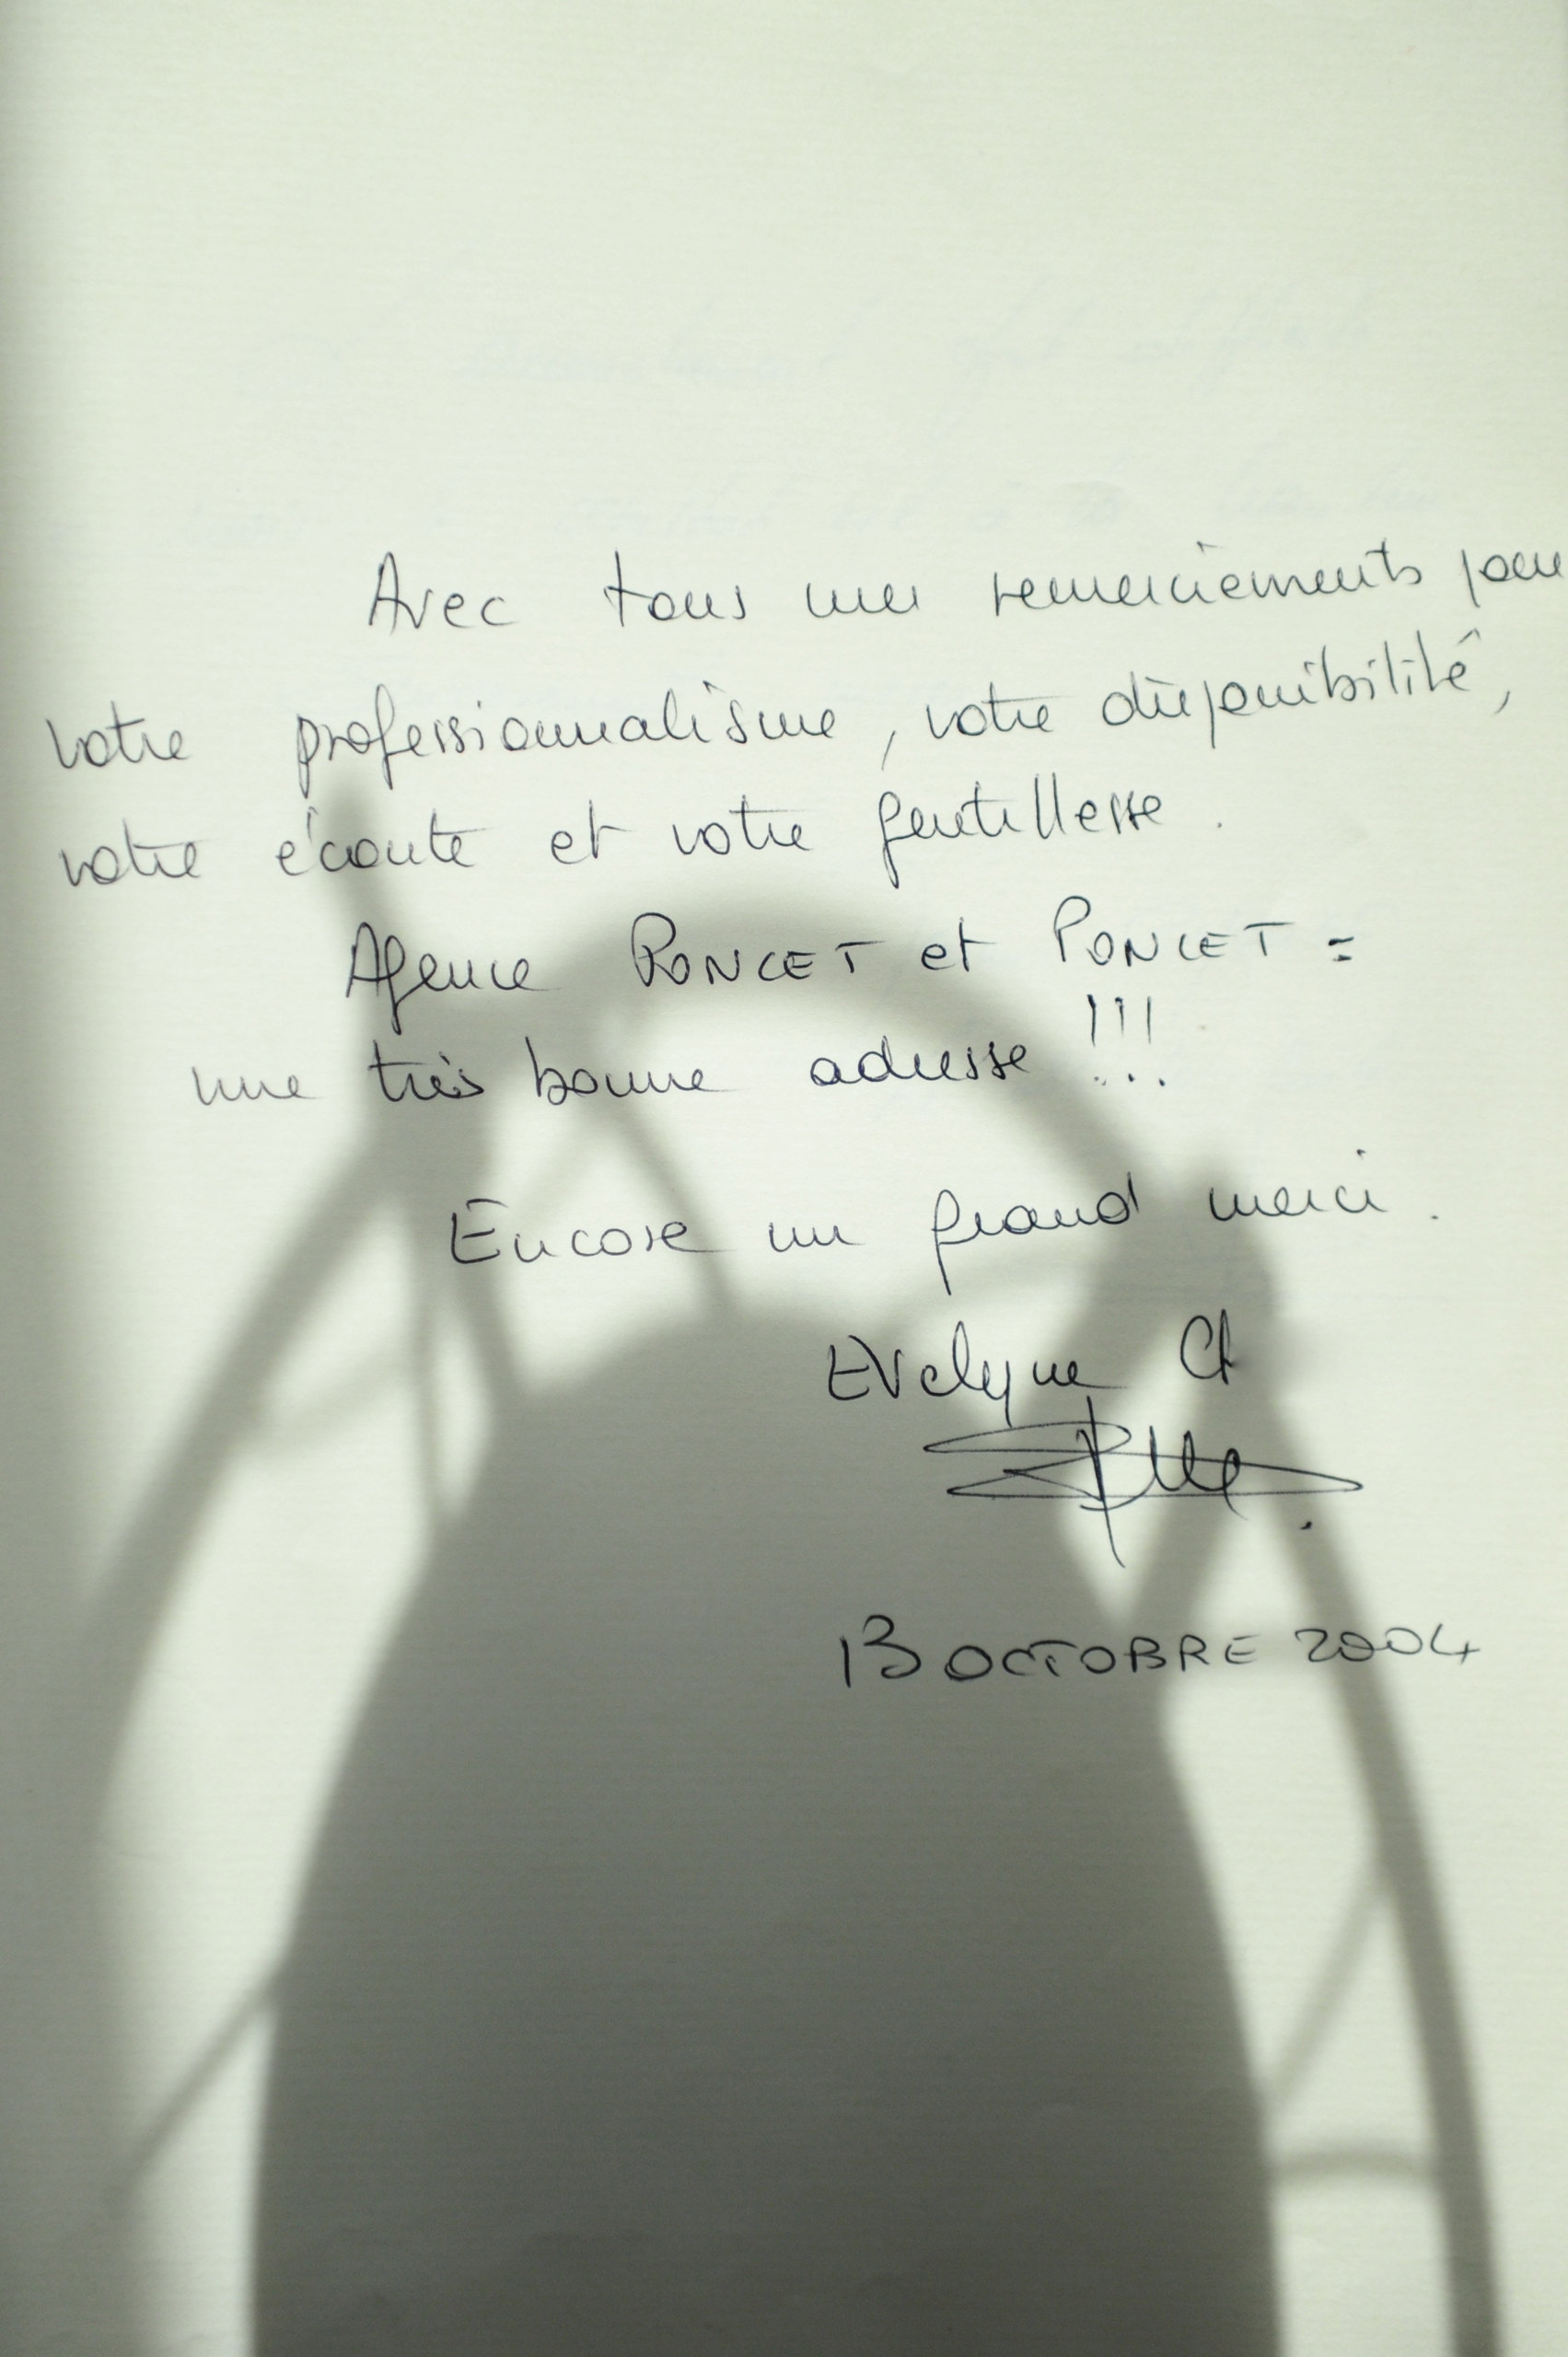 Avec tous mes remerciements pour
votre professionnalisme, votre disponibilité,
votre écoute et votre gentillesse.
Agence PONCET et PONCET =
une très bonne adresse !!!
Encore un grand merci.
Evelyne
13 OCTOBRE 2004